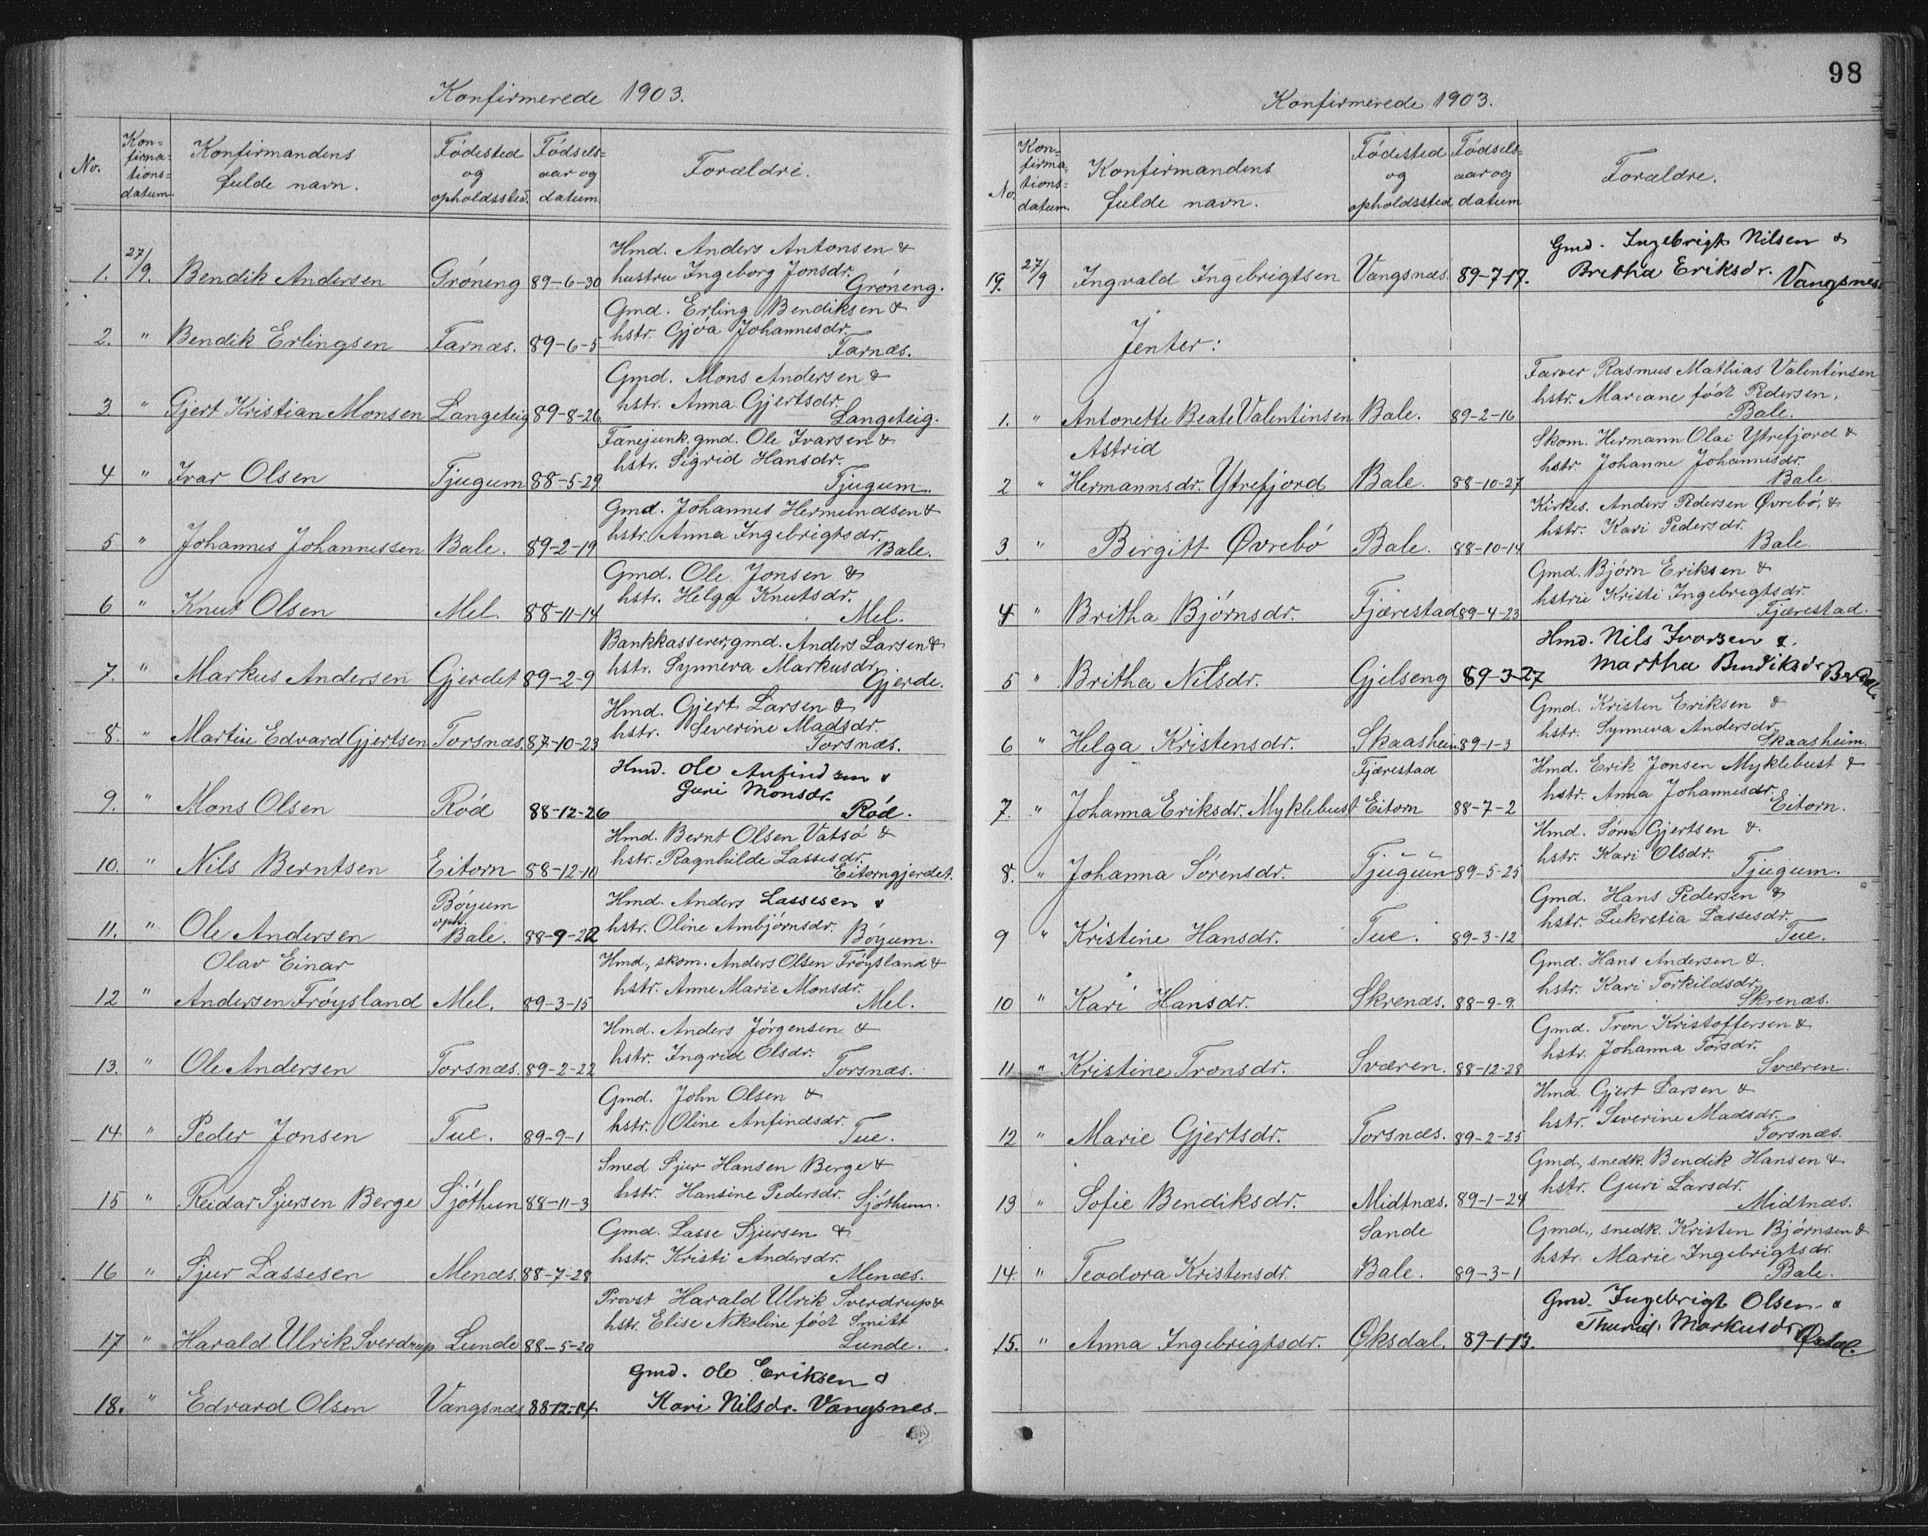 Konfirmerede 1903.
No.
Kon=
firma=
tions=
datum.
Konfirmandens
fulde navn.
Fødested
og
opholdssted.
Fødsels=
aar og
datum.
Forældre.
Hmd. Anders Antonsen &
1. 27/9. Bendik Andersen Grøneng 89-6-30 hustru Ingeborg Jonsdr. Grøneng.
Gmd. Erling Bendiksen &
2. " Bendik Erlingsen Farnæs. 89-6-5 hstr. Gjøa Johannesdr. Farnæs.
Gmd. Mons Andersen &
3 " Gjert Kristian Monsen Langeteig 89-8-26 hstr. Anna Gjertsdr. Langeteig.
Fanejunk, gmd. Ole Ivarsen &
4 " Ivar Olsen Tjugum 88-5-29 hstr. Sigrid Hansdr. Tjugum.
Gmd. Johannes Hermundsen &
5 " Johannes Johannessen Bale. 89-2-19 hstr. Anna Ingebrigtsdr. Bale.
Gmd. Ole Jonsen &
6 " Knut Olsen Mel. 88-11-14 hstr. Helga Knutsdr. Mel.
Bankkasserer, gmd. Anders Larsen &
7. " Markus Andersen Gjerdet 89-2-9 hstr. Synneva Markusdr. Gjerde.
Hmd. Gjert Larsen &
8. " Martin Edvard Gjertsen Torsnæs. 87-10-23 hstr. Severine Madsdr. Torsnæs.
Hmd. Ole Anfindsen &
9. " Mons Olsen Rød 88-12-26 Guri Monsdr. Rød.
Hmd. Bernt Olsen Vatsø &
10. " Nils Berntsen Eitorn 88-12-10 hstr. Ragnhilde Lassesdr. Eitorngjerdet.
Bøyum Hmd. Anders Lassesen &
11. " Ole Andersen oph. Bale. 88-9-22 hstr. Oline Ambjørnsdr. Bøyum.
Olav Einar Hmd., skom. Anders Olsen Frøysland &
12 " Andersen Frøysland Mel. 89-3-15 hstr. Anne Marie Monsdr. Mel.
Hmd. Anders Jørgensen &
13. " Ole Andersen Torsnæs. 89-2-22 hstr. Ingrid Olsdr. Torsnæs.
Gmd. John Olsen &
14 " Peder Jonsen Tue. 89-9-1 hstr. Oline Anfindsdr. Tue.
Smed Sjur Hansen Berge &
15 " Reidar Sjursen Berge Sjøthun 88-11-3 hstr. Hansine Pedersdr. Sjøthun.
Gmd. Lasse Sjursen &
16 " Sjur Lassesen Menæs. 88-7-28 hstr. Kristi Andersdr. Menæs.
Provst Harald Ulrik Sverdrup &
17 " Harald Ulrik Sverdrup Lunde 88-5-20 hstr. Elise Nikoline født Smitt Lunde.
Gmd. Ole Eriksen &
18. " Edvard Olsen Vangsnæs 88-12-14. Kari Nilsdr. Vangsnes.
98
Konfirmerede 1903.
No.
Kon=
firma=
tions=
datum.
Konfirmandens
fulde navn.
Fødested
og
opholdssted
Fødsels=
aar og
datum
Forældre.
Gmd. Ingebrigt Nilsen &
19. 27/9 Ingvald Ingebrigtsen Vangsnæs. 89-7-17. Britha Eriksdr. Vangsnes
Jenter:
Farver Rasmus Mathias Valentinsen
hstr. Mariane født Pedersen,
1. " Antonette Beate Valentinsen Bale. 89-2-16 Bale.
Astrid Skom. Hermann Olai Ytrefjord &
hstr. Johanne Johannesdr.
2 " Hermannsdr. Ytrefjord Bale. 88-10-27 Bale
Kirkes. Anders Pedersen Øvrebø, &
3 " Birgitt Øvrebø Bale. 88-10-14 hstr. Kari Pedersdr. Bale.
Gmd. Bjørn Eriksen &
4 " Britha Bjørnsdr. Fjærestad 89-4-23 hstru Kristi Ingebrigtsdr. Fjærestad.
Hmd. Nils Ivarsen &
5 " Britha Nilsdr. Gjelseng 89-3-27 Martha Bendiksdr
Gmd. Kristen Eriksen &
6 " Helga Kristensdr. Skaasheim 89-1-3 hstr. Synneva Andersdr. Skaasheim.
Fjærestad Hmd. Erik Jonsen Myklebust &
7. " Johanna Eriksdr. Myklebust Eitorn 88-7-2 hstr. Anna Johannesdr. Eitorn.
Hmd. Sørn Gjertsen &
8. " Johanna Sørensdr. Tjugum 89-5-25 hstr. Kari Olsdr. Tjugum.
Gmd. Hans Pedersen &
9 " Kristine Hansdr. Tue. 89-3-12 hstr. Lukretia Lassesdr. Tue.
Gmd. Hans Andersen &
10 " Kari Hansdr. Skrenæs. 88-9-9. hstr. Kari Torkildsdr. Skrenæs.
Gmd. Tron Kristoffersen &
11 " Kristine Tronsdr. Sværen. 88-12-28 hstr. Johanna Torsdr. Sværen.
Hmd. Gjert Larsen &
12 " Marie Gjertsdr. Torsnæs. 89-2-25 hstr. Severine Madsdr. Torsnæs.
Gmd., snedk. Bendik Hansen &
13 " Sofie Bendiksdr. Midtnæs. 89-1-24 hstr. Guri Larsdr. Midtnæs.
Sande Gmd., snedk. Kristen Bjørnsen &
14. " Teodora Kristensdr. Bale. 89-3-1 hstr. Marie Ingebrigtsdr. Bale.
Gmd. Ingebrigt Olsen &
15. " Anna Ingebrigtsdr. Øksdal. 89-1-13. Thurid Markusdr